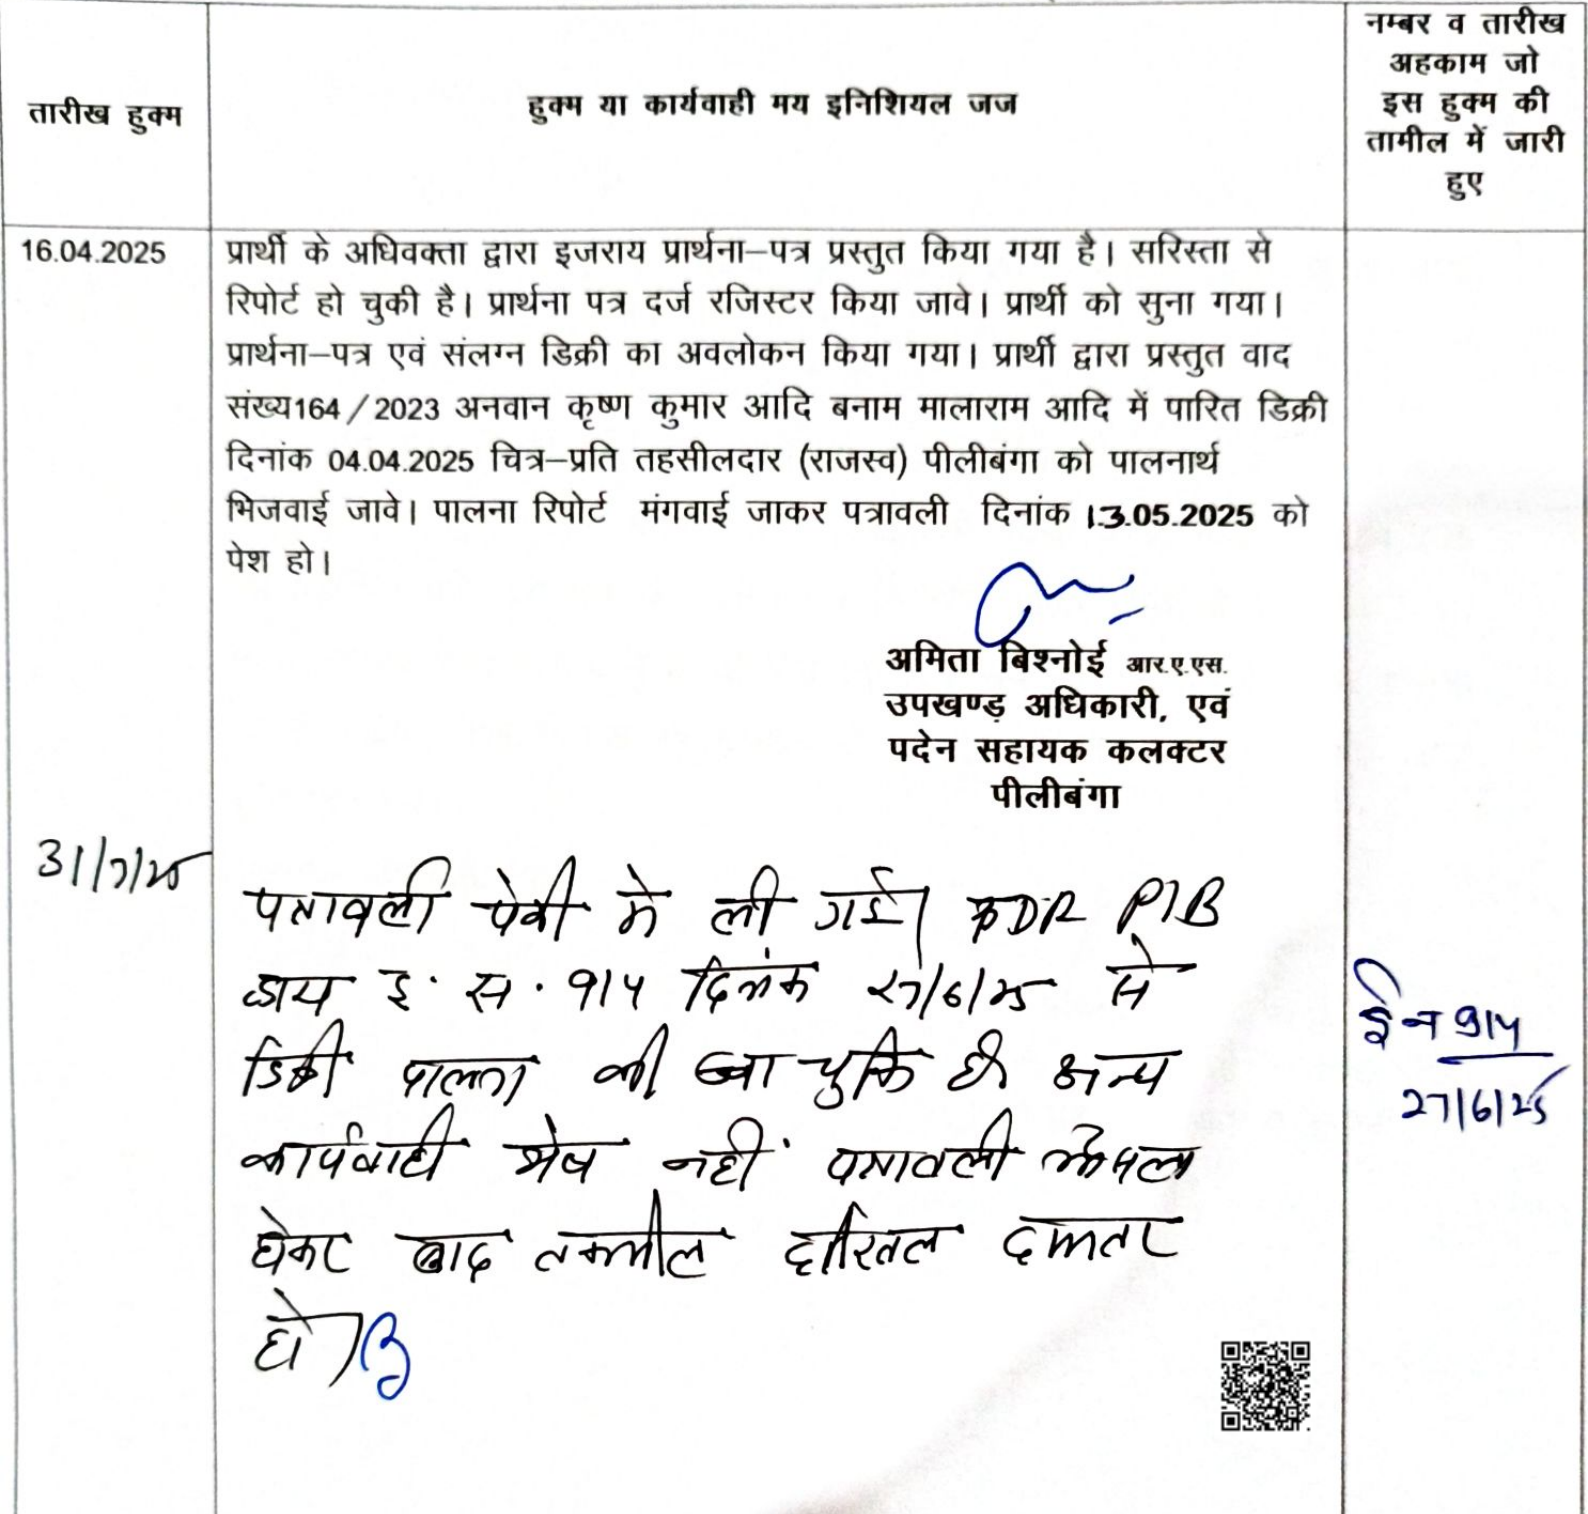 तारीख हुक्म
हुक्म या कार्यवाही मय इनिशियल जज
नम्बर व तारीख
अहकाम जो
इस हुक्म की
तामील में जारी
हुए
16.04.2025
प्रार्थी के अधिवक्ता द्वारा इजराय प्रार्थना–पत्र प्रस्तुत किया गया है। सरिस्ता से
रिपोर्ट हो चुकी है। प्रार्थना पत्र दर्ज रजिस्टर किया जावे। प्रार्थी को सुना गया।
प्रार्थना–पत्र एवं संलग्न डिक्री का अवलोकन किया गया। प्रार्थी द्वारा प्रस्तुत वाद
संख्य164/2023 अनवान कृष्ण कुमार आदि बनाम मालाराम आदि में पारित डिक्री
दिनांक 04.04.2025 चित्र–प्रति तहसीलदार (राजस्व) पीलीबंगा को पालनार्थ
भिजवाई जावे। पालना रिपोर्ट मंगवाई जाकर पत्रावली दिनांक 13.05.2025 को
पेश हो।
अमिता बिश्नोई आर.ए.एस.
उपखण्ड अधिकारी, एवं
पदेन सहायक कलक्टर
पीलीबंगा
31/7/25
पत्रावली पेशी मे ली गई। TDR PIB
द्वारा इ. स. 914 दिनांक 27/6/25 से
डिक्री पालना की जा चुकि है अन्य
कार्यवाही शेष नहीं पत्रावली फैसला
होकर बाद तकमील दाखिल दफ्तर
हो।
ई न 914
27/6/25